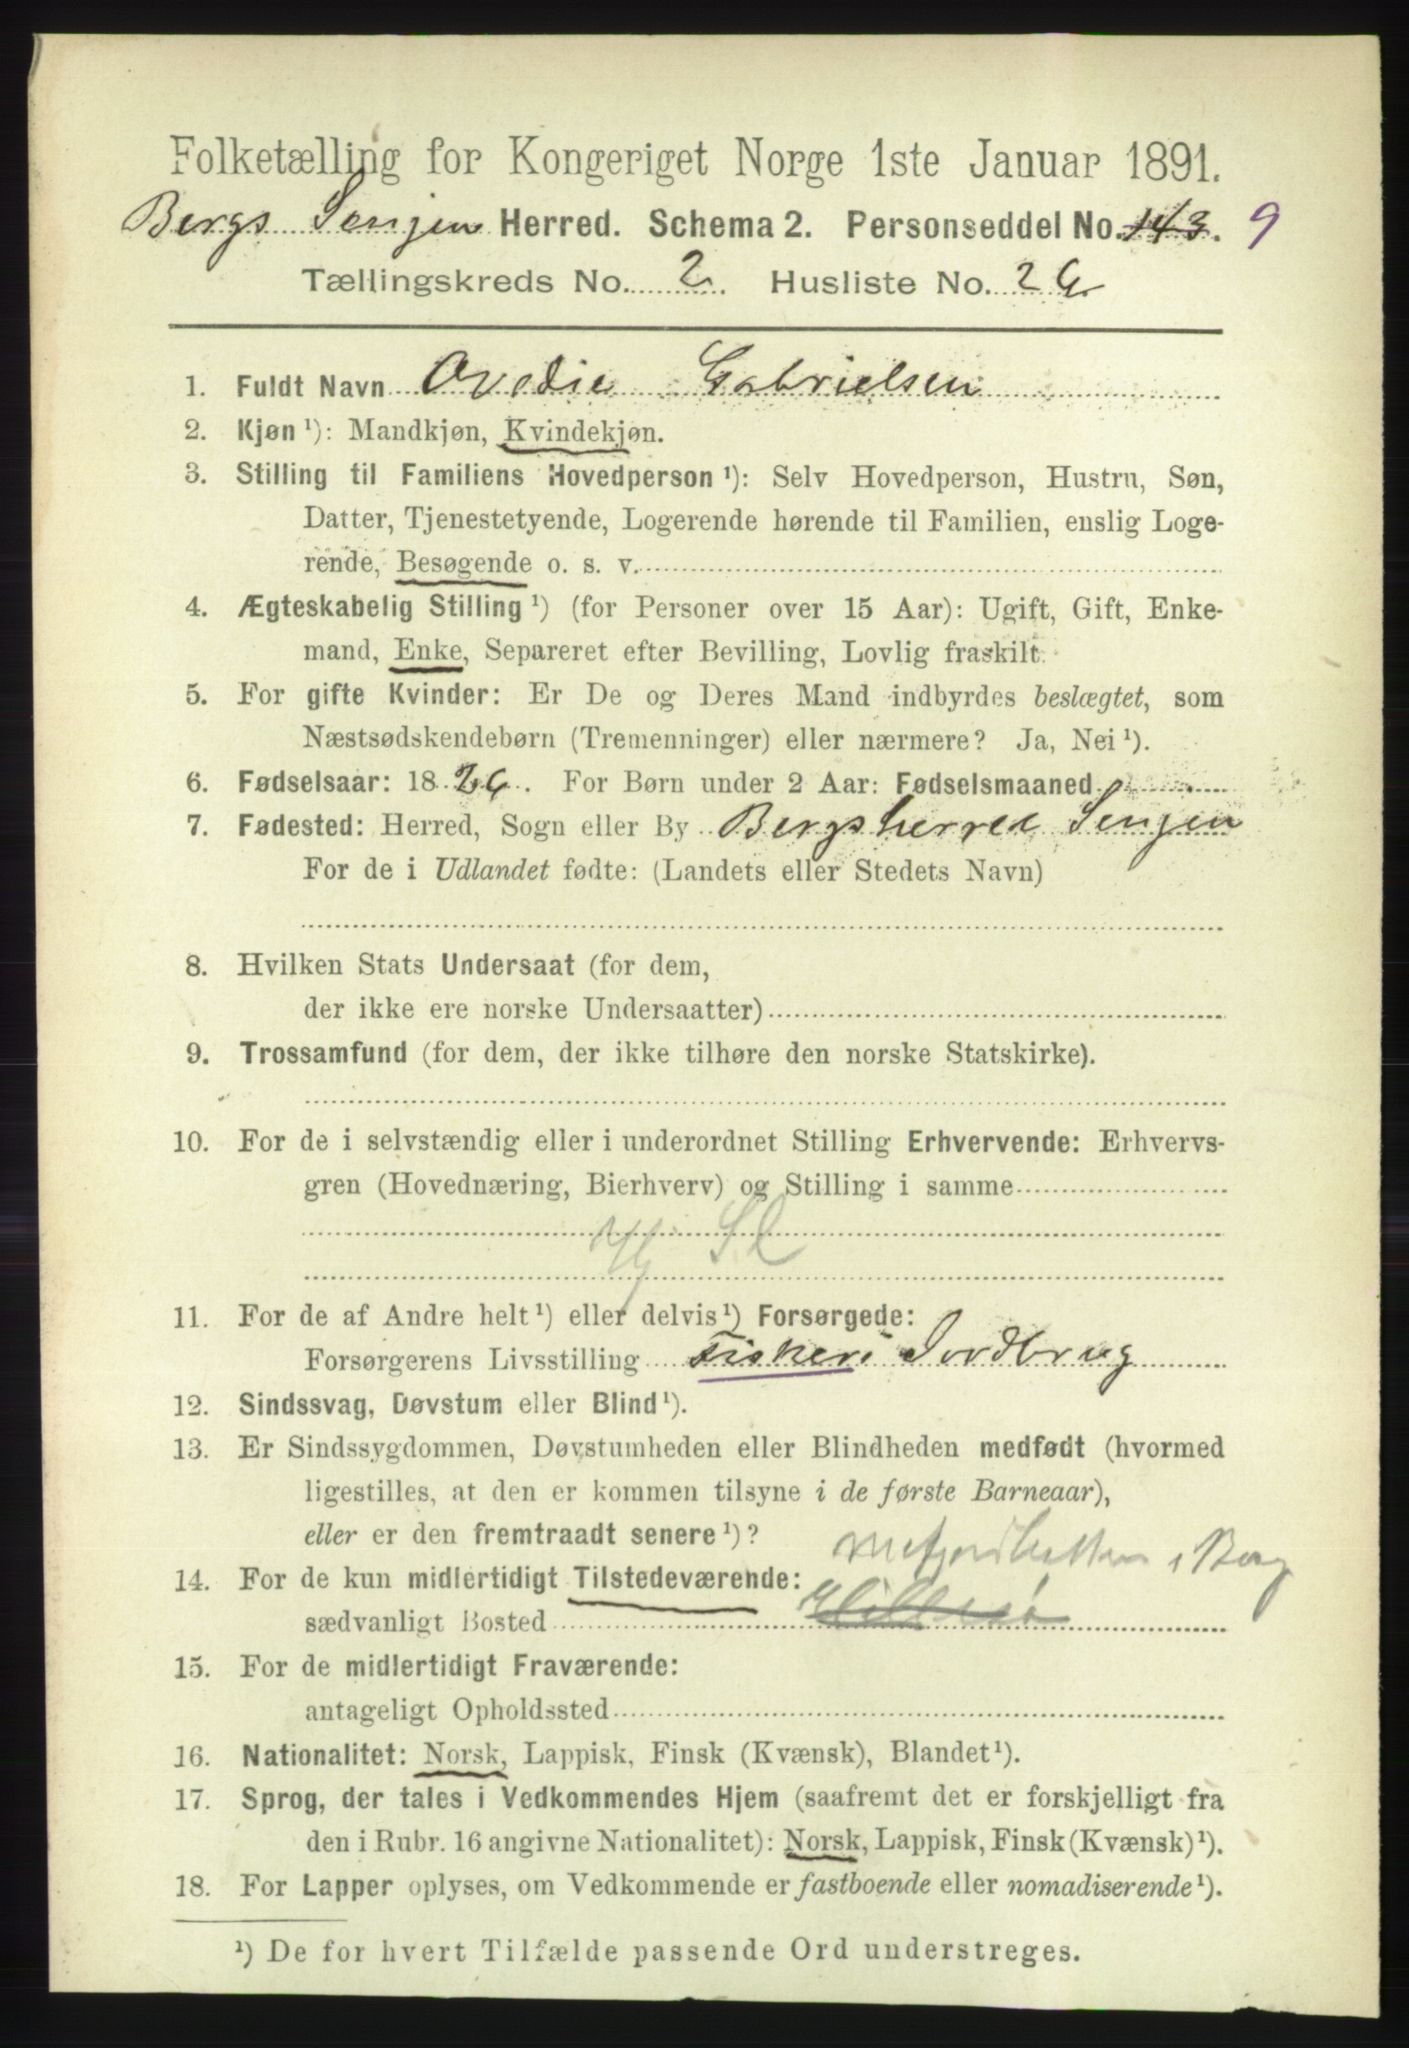 Folketælling for Kongeriget Norge 1ste Januar 1891.
Bergs Senjen Herred. Schema 2. Personseddel No. 143. 9
Tællingskreds No. 2. Husliste No. 26
1. Fuldt Navn Ovedie Gabrielsen
2. Kjøn ¹): Mandkjøn, Kvindekjøn.
3. Stilling til Familiens Hovedperson ¹): Selv Hovedperson, Hustru, Søn,
Datter, Tjenestetyende, Logerende hørende til Familien, enslig Loge-
rende, Besøgende o. s. v.
4. Ægteskabelig Stilling ¹) (for Personer over 15 Aar): Ugift, Gift, Enke-
mand, Enke, Separeret efter Bevilling, Lovlig fraskilt.
5. For gifte Kvinder: Er De og Deres Mand indbyrdes beslægtet, som
Næstsødskendebørn (Tremenninger) eller nærmere? Ja, Nei ¹).
6. Fødselsaar: 1826. For Børn under 2 Aar: Fødselsmaaned
7. Fødested: Herred, Sogn eller By Bergsherred Senjen
For de i Udlandet fødte: (Landets eller Stedets Navn)
8. Hvilken Stats Undersaat (for dem,
der ikke ere norske Undersaatter)
9. Trossamfund (for dem, der ikke tilhøre den norske Statskirke).
10. For de i selvstændig eller i underordnet Stilling Erhvervende: Erhvervs-
gren (Hovednæring, Bierhverv) og Stilling i samme
11. For de af Andre helt ¹) eller delvis ¹) Forsørgede:
Forsørgerens Livsstilling Fiskeri Jordbrug
12. Sindssvag, Døvstum eller Blind ¹).
13. Er Sindssygdommen, Døvstumheden eller Blindheden medfødt (hvormed
ligestilles, at den er kommen tilsyne i de første Barneaar),
eller er den fremtraadt senere ¹)?
i Berg
14. For de kun midlertidigt Tilstedeværende:
sædvanligt Bosted
15. For de midlertidigt Fraværende:
antageligt Opholdssted
16. Nationalitet: Norsk, Lappisk, Finsk (Kvænsk), Blandet ¹).
17. Sprog, der tales i Vedkommendes Hjem (saafremt det er forskjelligt fra
den i Rubr. 16 angivne Nationalitet): Norsk, Lappisk, Finsk (Kvænsk) ¹).
18. For Lapper oplyses, om Vedkommende er fastboende eller nomadiserende ¹).
¹) De for hvert Tilfælde passende Ord understreges.